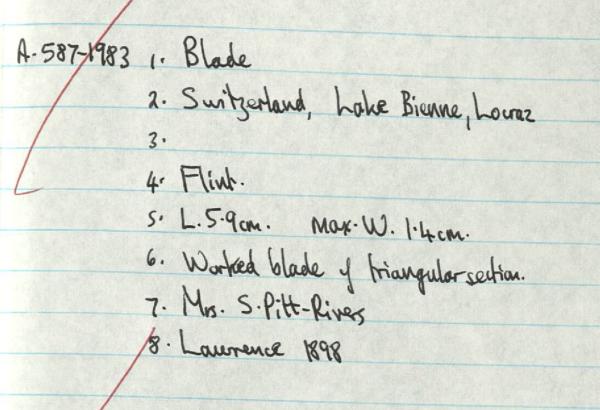 A.587-1983 1. Blade
2. Switzerland, Lake Bienne, Locraz
3.
4. Flint.
5. L. 5.9cm. Max. W. 1.4cm.
6. Worked blade of triangular section.
7. Mrs. S. Pitt-Rivers
8. Lawrence 1898